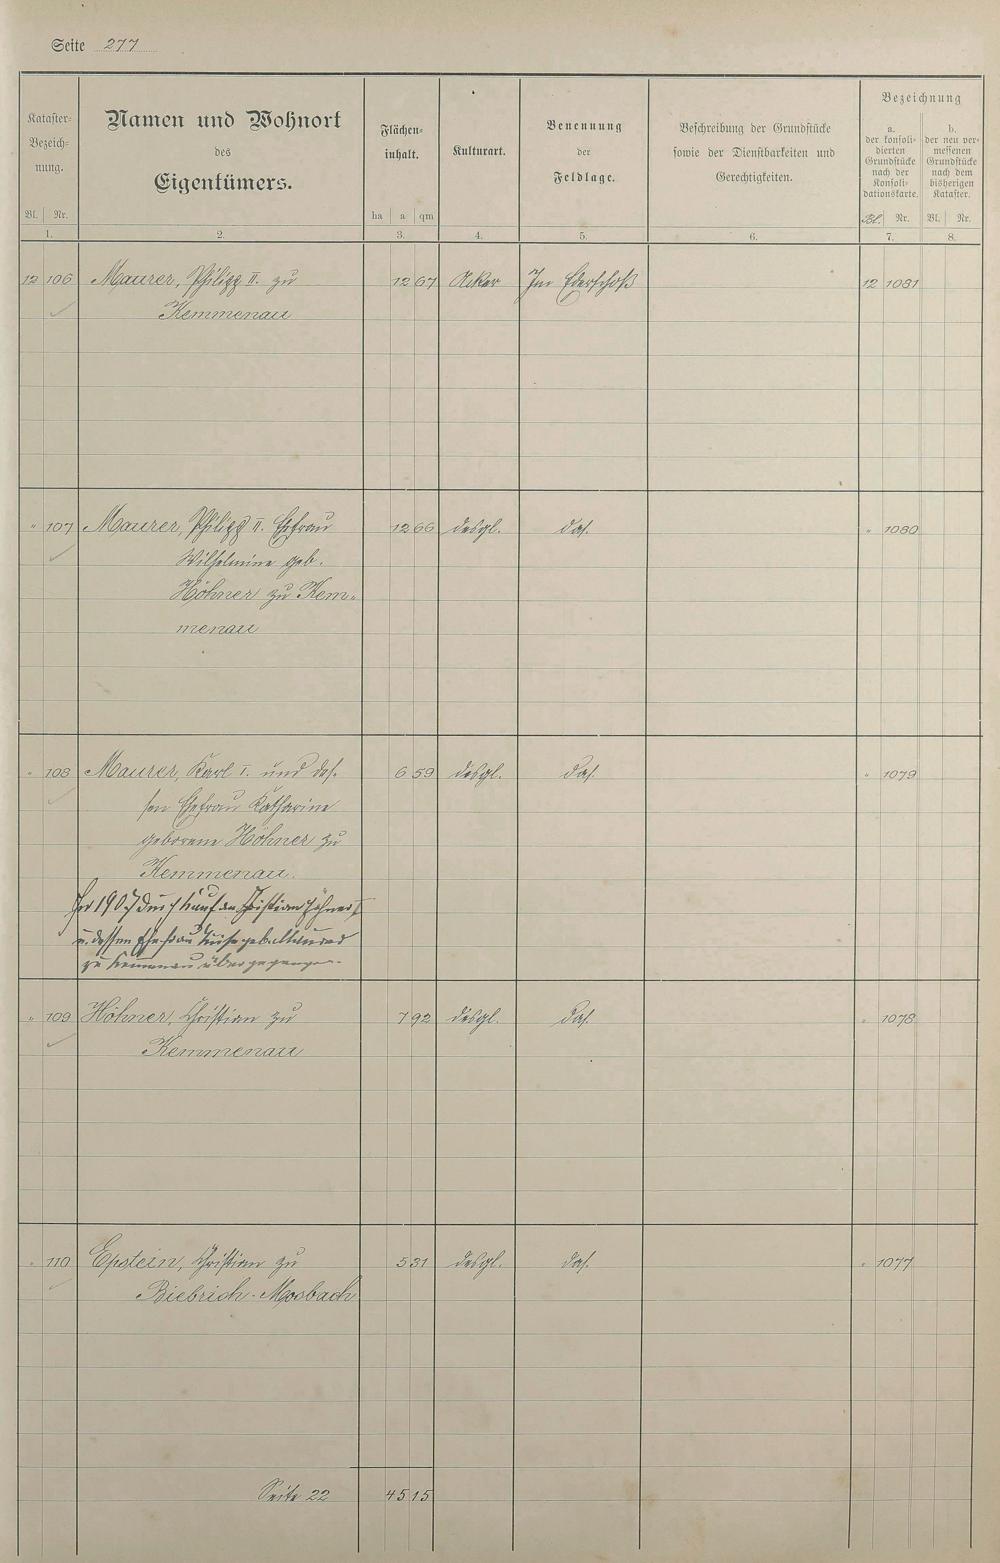 Seite 277
Kataster-
Bezeich-
nung.
Bl. Nr.
1.
Namen und Wohnort
des
Eigentümers.
2.
Flächen-
inhalt.
ha a qm
3.
Kulturart.
4.
Benennung
der
Feldlage.
5.
Beschreibung der Grundstücke
sowie der Dienstbarkeiten und
Gerechtigkeiten.
6.
Bezeichnung
a.
der konsoli-
dierten
Grundstücke
nach der
Konsoli-
dationskarte.
Bl. Nr.
7.
b.
der neu ver-
messenen
Grundstücke
nach dem
bisherigen
Kataster.
Bl. Nr.
8.
12 106 Maurer, Philipp II. zu 12 67 Acker Im Ederschoß 12 1081
Kemmenau
" 107 Maurer, Philipp II. Ehefrau 12 66 desgl. das. " 1080
Wilhelmine geb.
Höhner zu Kem-
menau
" 108 Maurer, Karl I. und des- 6 59 desgl. das. " 1079
sen Ehefrau Katharine
geborene Höhner zu
Kemmenau.
1907 durch Kauf an Christian Höhner
u. dessen Ehefrau Luise geb. Maurer
zu Kemmenau übergegangen.
" 109 Höhner, Christian zu 7 92 desgl. das. " 1078
Kemmenau
" 110 Epstein, Christian zu 5 31 desgl. das. " 1077
Biebrich-Mosbach
Seite 22 45 15